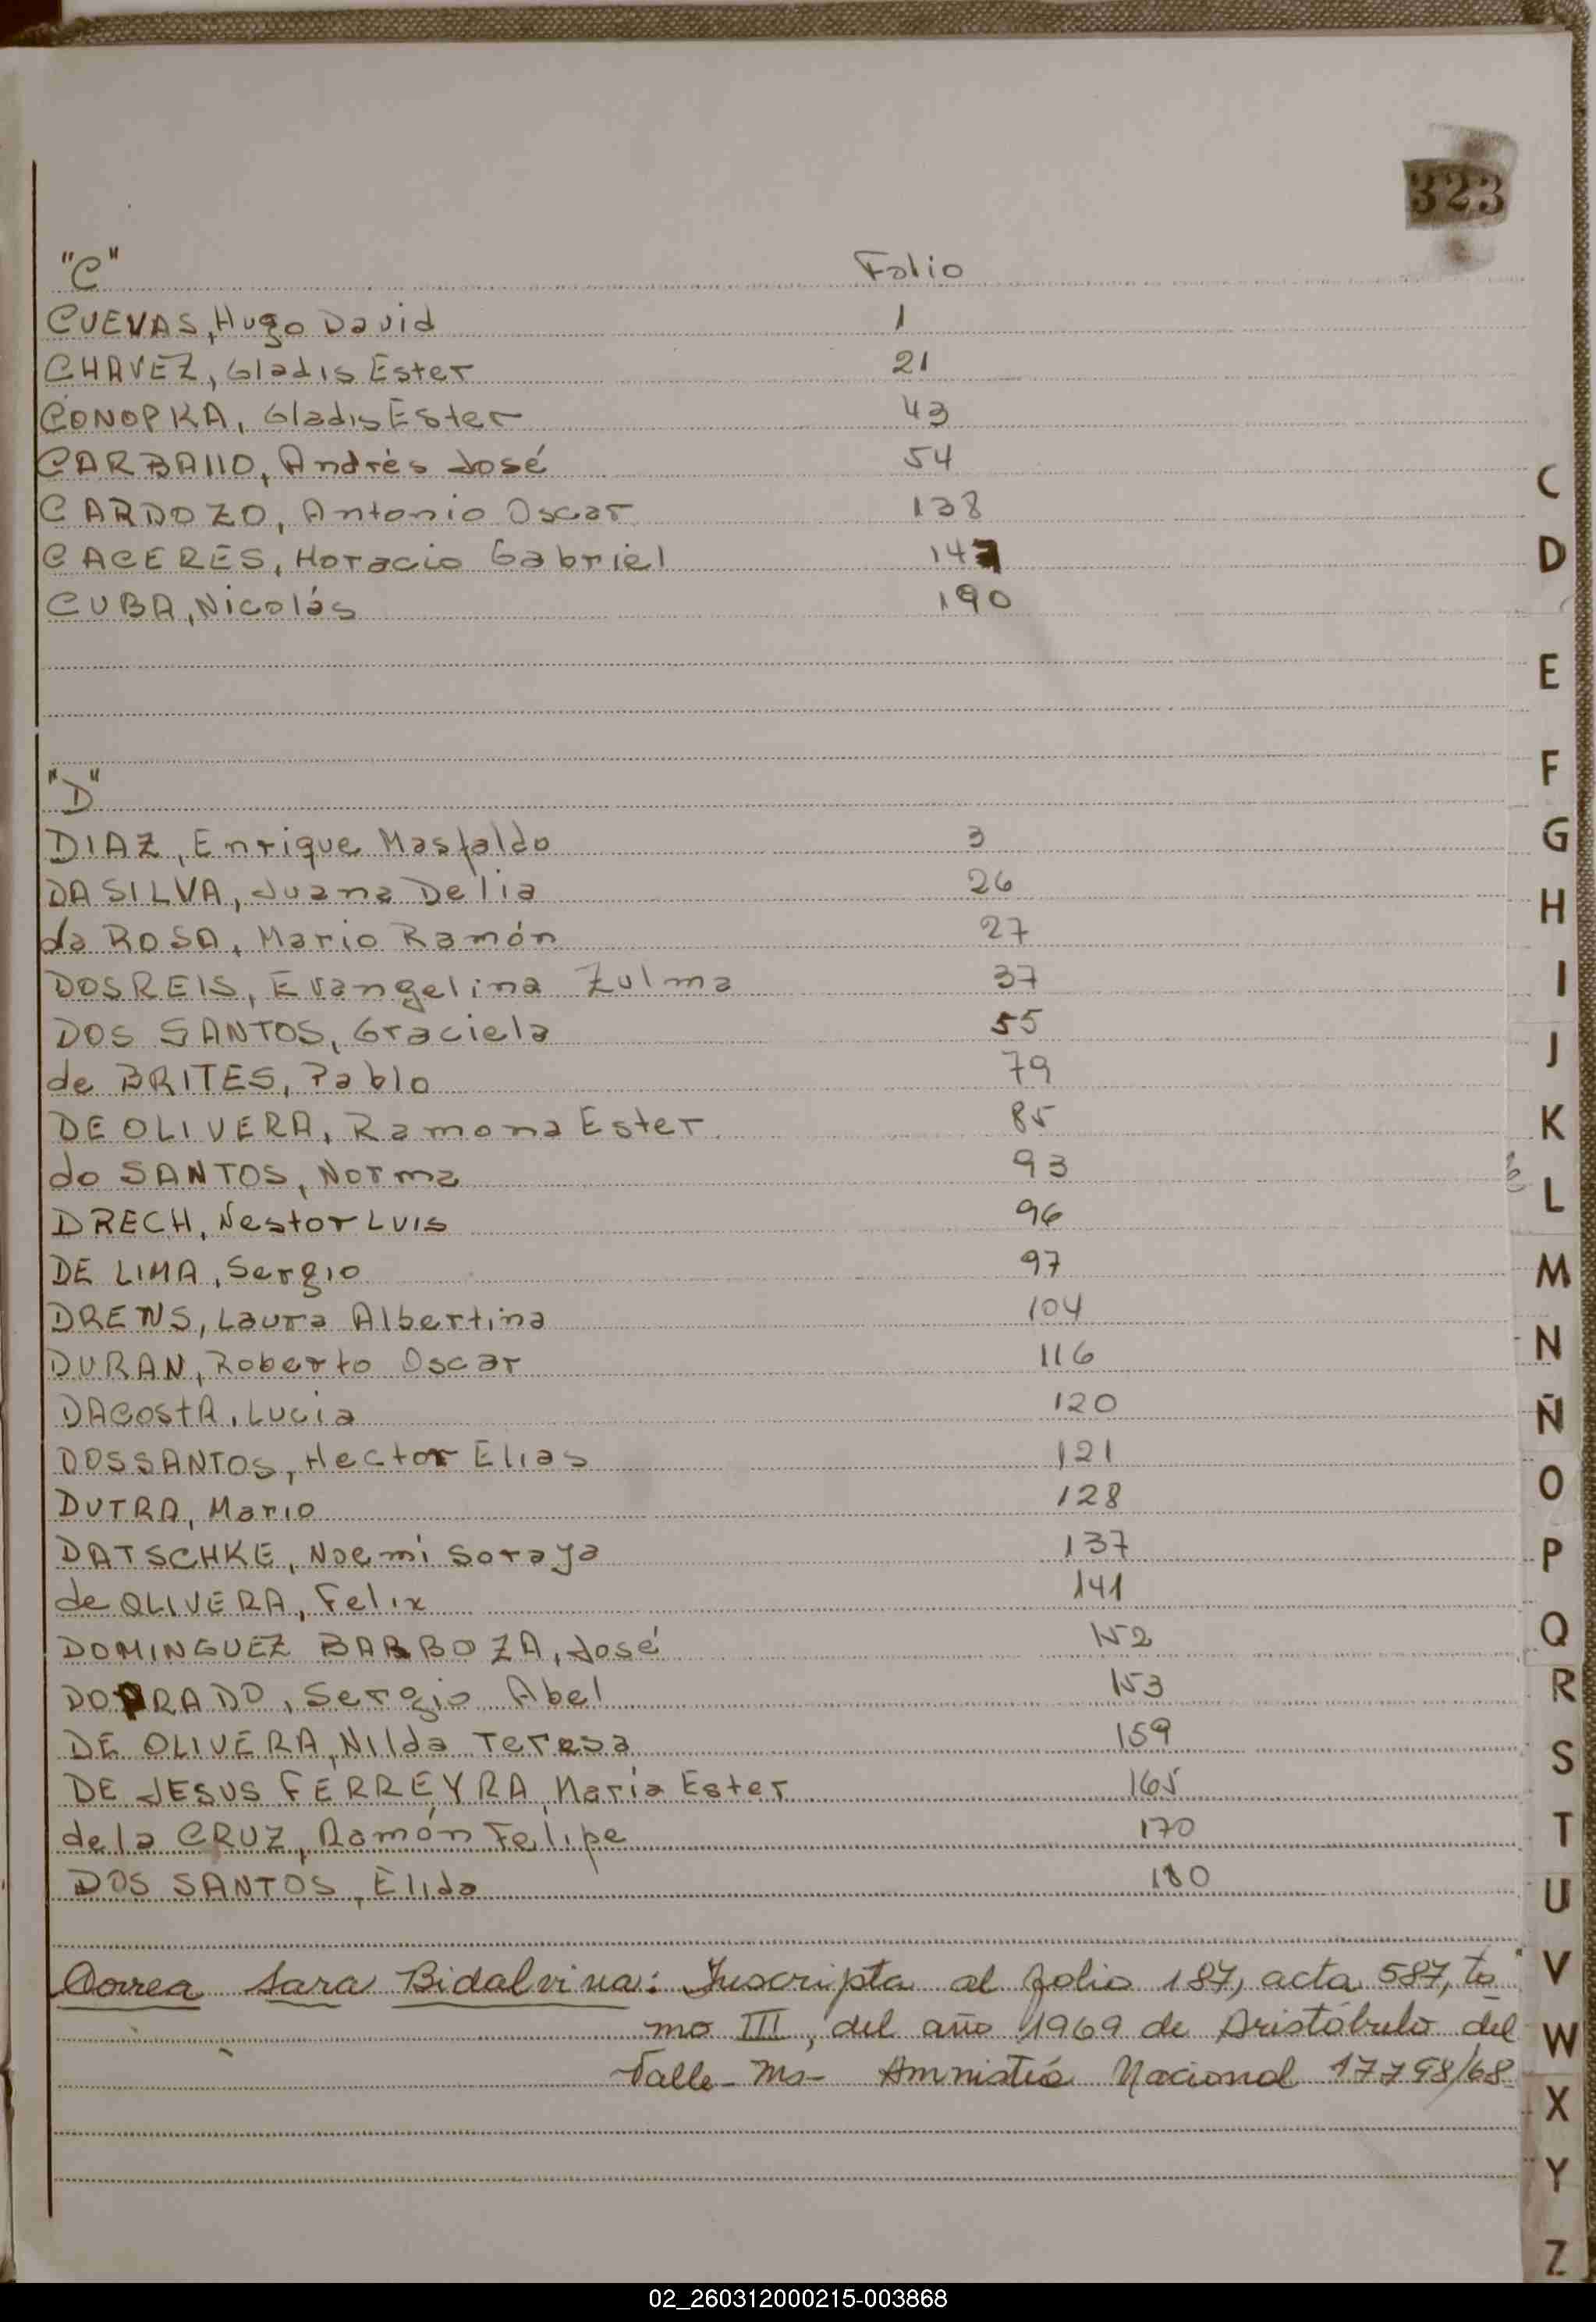 323
"C" Folio
CUEVAS, Hugo David 1
CHAVEZ, Gladis Ester 21
CONOPKA, Gladis Ester 43
CARBAllO, Andrès José 54
CARDOZO, Antonio Oscar 138
CACERES, Horacio Gabriel 147
CUBA, Nicolás 190
"D"
DIAZ, Enrique Masfaldo 3
DA SILVA, Juana Delia 26
da ROSA, Mario Ramón 27
DOSREIS, Evangelina Zulma 37
DOS SANTOS, Graciela 55
de BRITES, Pablo 79
DE OLIVERA, Ramona Ester 85
do SANTOS, Norma 93
DRECH, Nestor Luis 96
DE LIMA, Sergio 97
DREWS, Laura Albertina 104
DURAN, Roberto Oscar 116
DACOSTA, Lucia 120
DOSSANTOS, Hector Elias 121
DUTRA, Mario 128
DATSCHKE, Noemi Soraya 137
de OLIVERA, Felix 141
DOMINGUEZ BARBOZA, José 152
DOPRADO, Sergio Abel 153
DE OLIVERA, Nilda Teresa 159
DE JESUS FERREYRA, María Ester 165
de la CRUZ, Ramón Felipe 170
DOS SANTOS, Elida 180
Correa Sara Bidalvina: Inscripta al folio 187, acta 587, to
mo III, del año 1969 de Aristóbulo del
Valle - Ms - Amnistía Nacional 17798/68
C
D
E
F
G
H
I
J
K
L
M
N
Ñ
O
P
Q
R
S
T
U
V
W
X
Y
Z
02_260312000215-003868